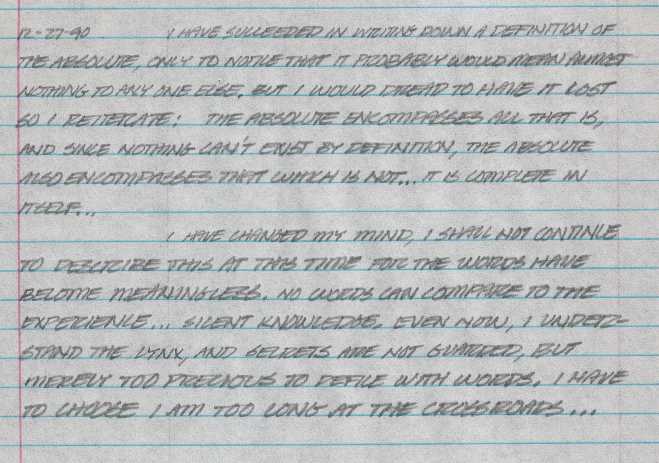 12-27-90 I HAVE SUCCEEDED IN WRITING DOWN A DEFINITION OF
THE ABSOLUTE, ONLY TO NOTICE THAT IT PROBABLY WOULD MEAN ALMOST
NOTHING TO ANY ONE ELSE. BUT I WOULD DREAD TO HAVE IT LOST
SO I REITERATE: THE ABSOLUTE ENCOMPASSES ALL THAT IS,
AND SINCE NOTHING CAN'T EXIST BY DEFINITION, THE ABSOLUTE
ALSO ENCOMPASSES THAT WHICH IS NOT... IT IS COMPLETE IN
ITSELF...
I HAVE CHANGED MY MIND, I SHALL NOT CONTINUE
TO DESCRIBE THIS AT THIS TIME FOR THE WORDS HAVE
BECOME MEANINGLESS. NO WORDS CAN COMPARE TO THE
EXPERIENCE... SILENT KNOWLEDGE. EVEN NOW, I UNDER-
STAND THE LYNX, AND SECRETS ARE NOT GUARDED, BUT
MERELY TOO PRECIOUS TO DEFILE WITH WORDS. I HAVE
TO CHOOSE I AM TOO LONG AT THE CROSSROADS...